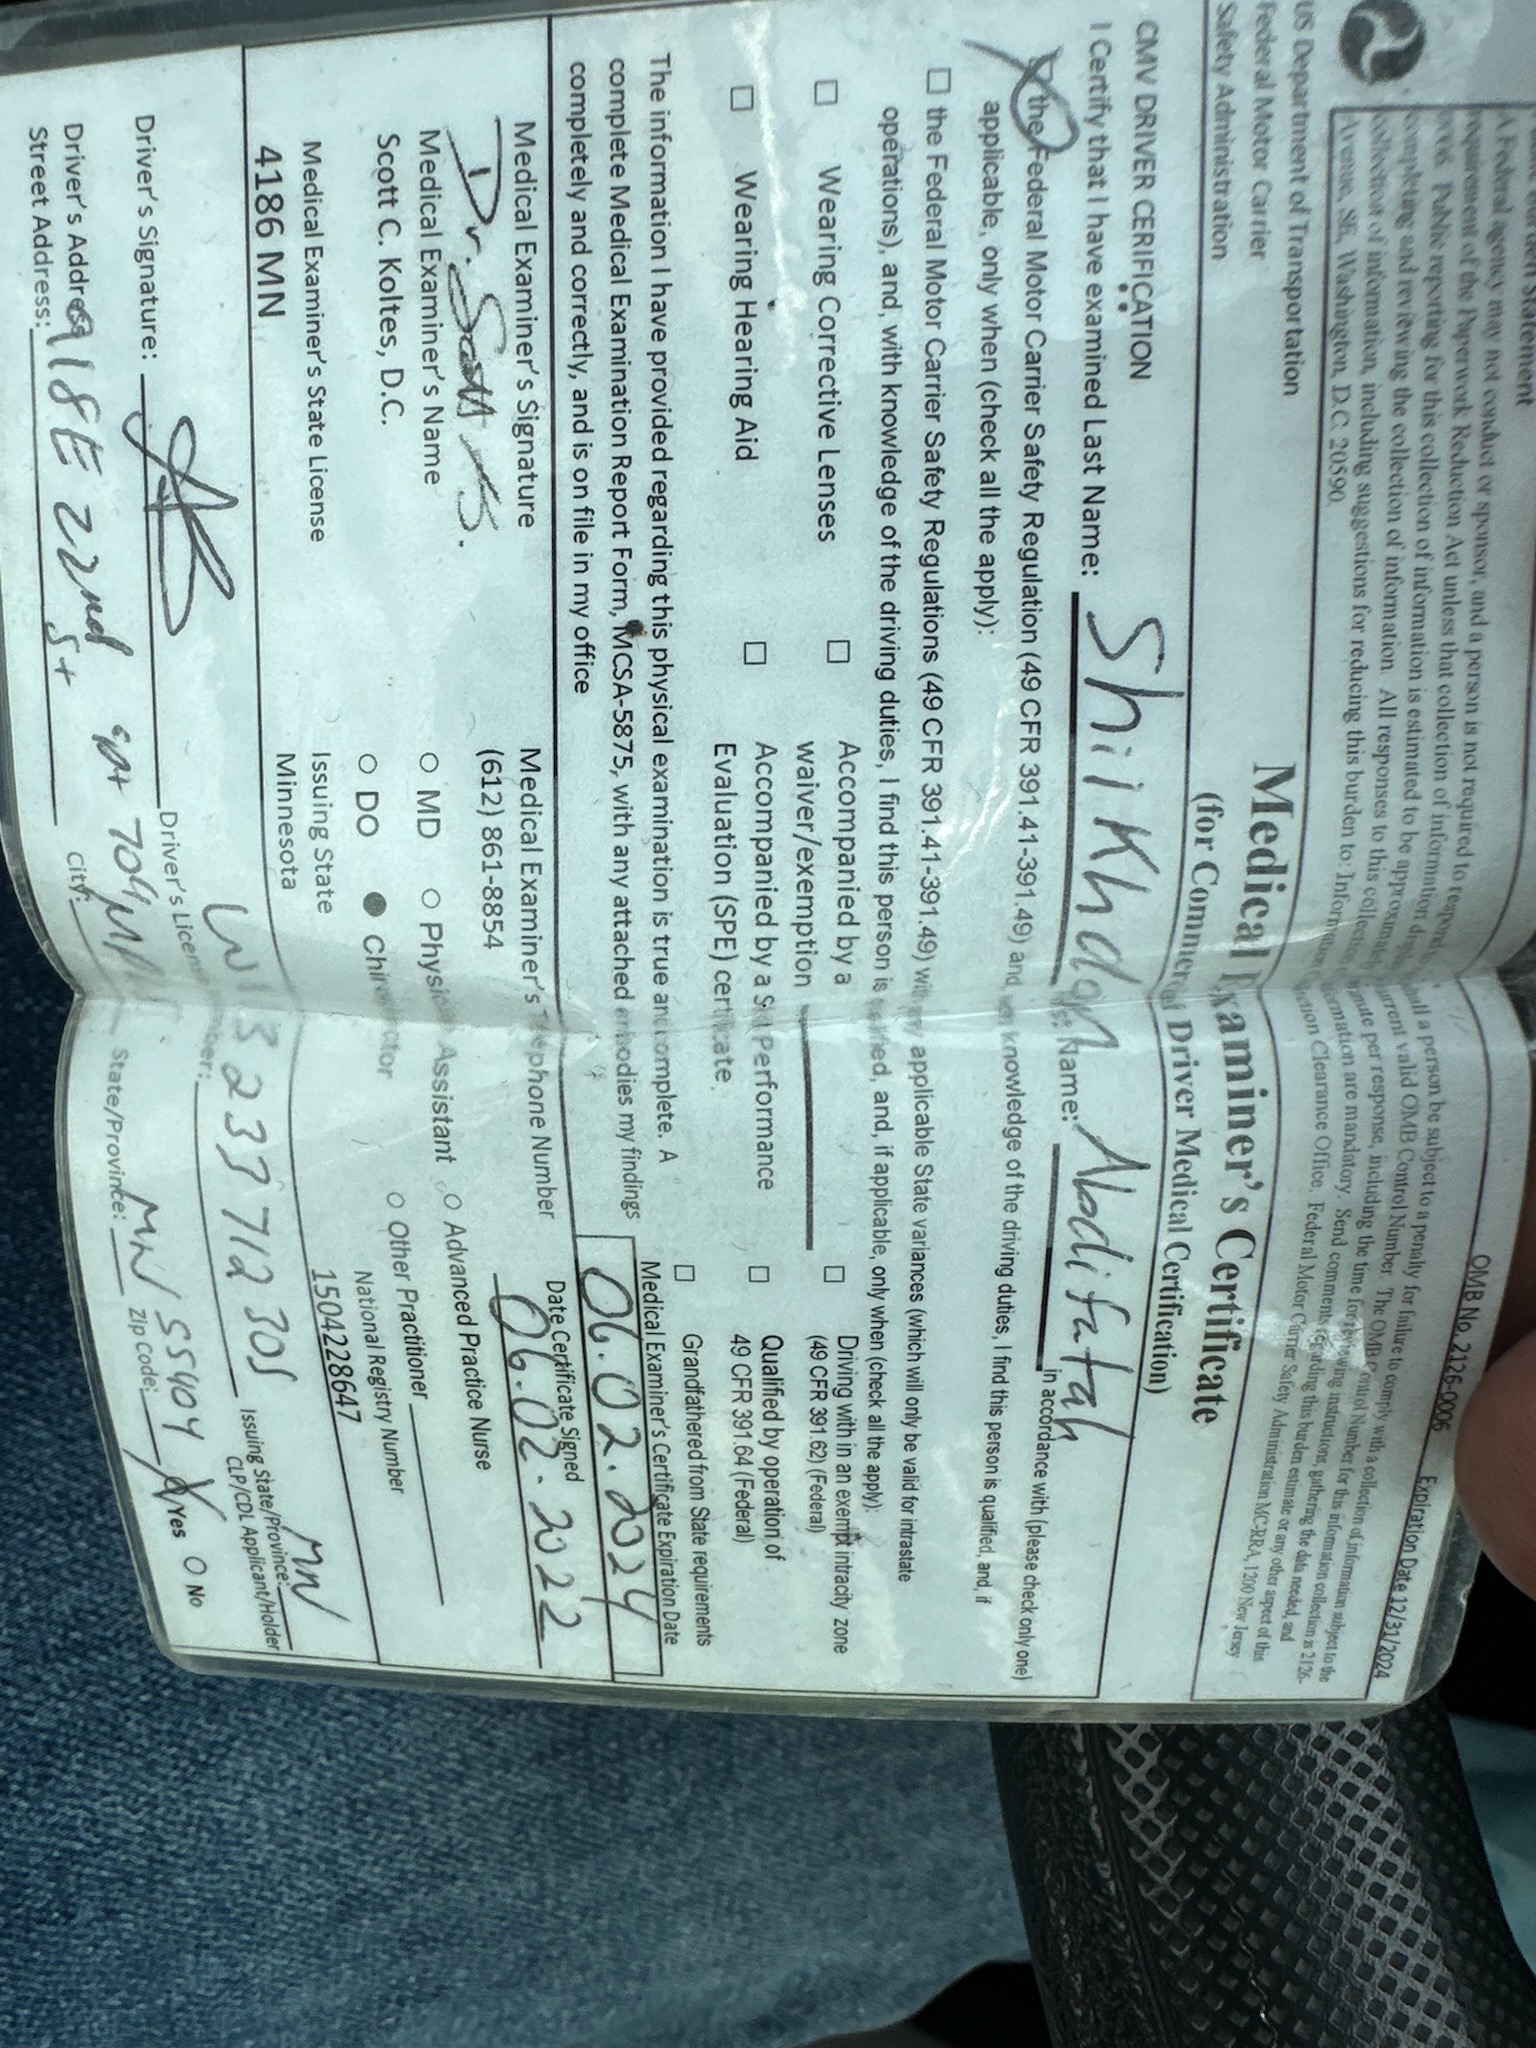 Statement
A Federal agency may not conduct or sponsor, and a person is not required to respond
requirement of the Paperwork Reduction Act unless that collection of information
Public reporting for this collection of information is estimated to be approximate
completing and reviewing the collection of information. All responses to this collection
collection of information, including suggestions for reducing this burden to: Information
Avenue, SE, Washington, D.C. 20590.
OMB No. 2126-0006 Expiration Date 12/31/2024
a person be subject to a penalty for failure to comply with a collection of information subject to the
current valid OMB Control Number. The OMB Control Number for this information collection is 2126-
per response, including the time for reviewing instructions, gathering the data needed, and
information are mandatory. Send comments regarding this burden estimate or any other aspect of this
Collection Clearance Office. Federal Motor Carrier Safety Administration MC-RRA, 1200 New Jersey
US Department of Transportation
Federal Motor Carrier
Safety Administration
Medical Examiner's Certificate
(for Commercial Driver Medical Certification)
CMV DRIVER CERIFICATION
I Certify that I have examined Last Name: Shiikhdon First Name: Abdifatah in accordance with (please check only one)
the Federal Motor Carrier Safety Regulation (49 CFR 391.41-391.49) and knowledge of the driving duties, I find this person is qualified, and, if
applicable, only when (check all the apply):
the Federal Motor Carrier Safety Regulations (49 CFR 391.41-391.49) with any applicable State variances (which will only be valid for intrastate
operations), and, with knowledge of the driving duties, I find this person is qualified, and, if applicable, only when (check all the apply):
Wearing Corrective Lenses
Accompanied by a
waiver/exemption
Driving with in an exempt intracity zone
(49 CFR 391.62) (Federal)
Wearing Hearing Aid
Accompanied by a Skill Performance
Evaluation (SPE) certificate
Qualified by operation of
49 CFR 391.64 (Federal)
Grandfathered from State requirements
The information I have provided regarding this physical examination is true and complete. A
complete Medical Examination Report Form, MCSA-5875, with any attached embodies my findings
completely and correctly, and is on file in my office
Medical Examiner's Certificate Expiration Date
06.02.2024
Medical Examiner's Signature
Dr. Scott
Medical Examiner's Telephone Number
(612) 861-8854
Date Certificate Signed
06.02.2022
Medical Examiner's Name
Scott C. Koltes, D.C.
MD Physician Assistant Advanced Practice Nurse
DO Chiropractor Other Practitioner
Medical Examiner's State License
4186 MN
Issuing State
Minnesota
National Registry Number
1504228647
Driver's Signature:
Driver's License Number: 323371230
Issuing State/Province: MN
CLP/CDL Applicant/Holder
Yes No
Driver's Address
Street Address: 918 E 22nd St apt 704
City:
State/Province: MN
Zip Code: 55404